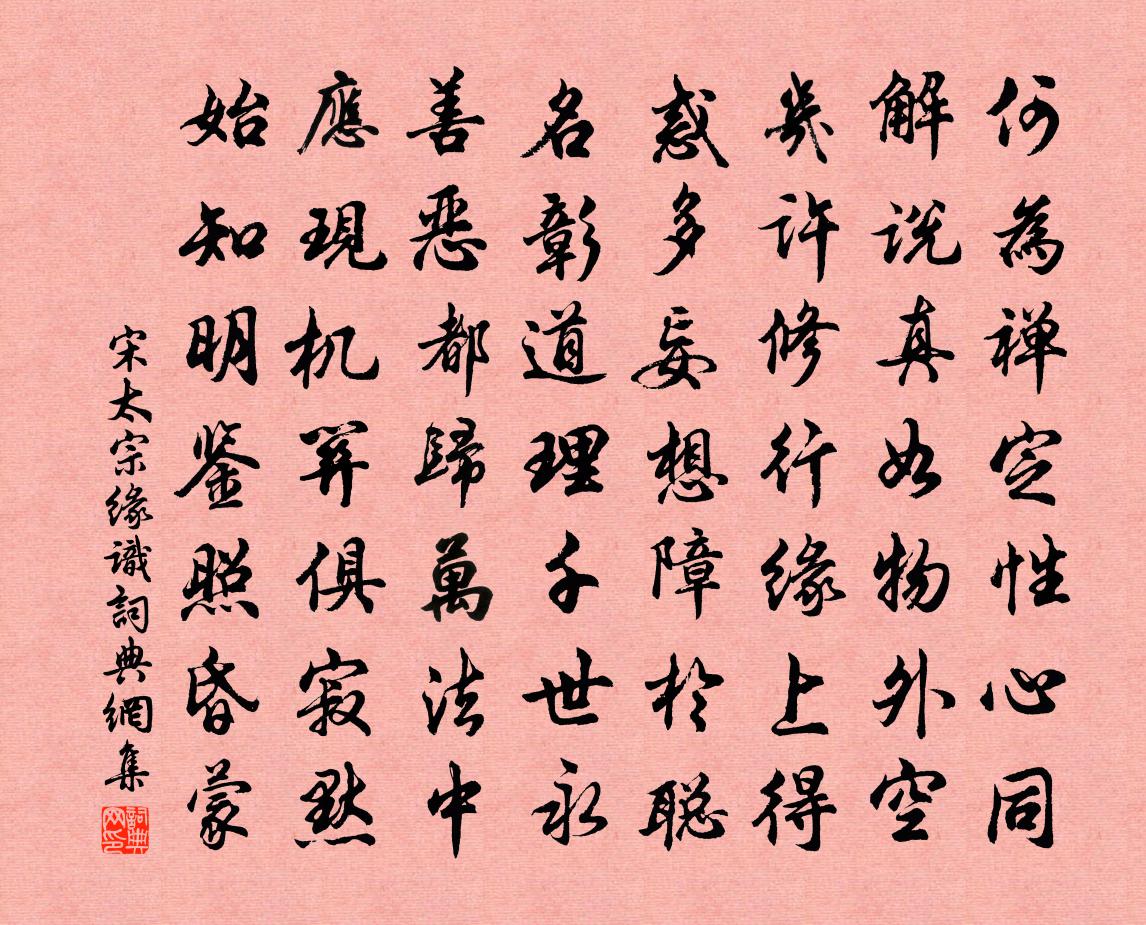 何為禅定性心同
解说真如物外空
幾许修行緣上得
惑多妄想障於聪
名彰道理千世永
善恶都歸萬法中
應現机筭俱寂默
始知明鉴照昏蒙
宋太宗緣識詞典網集
詞典网印